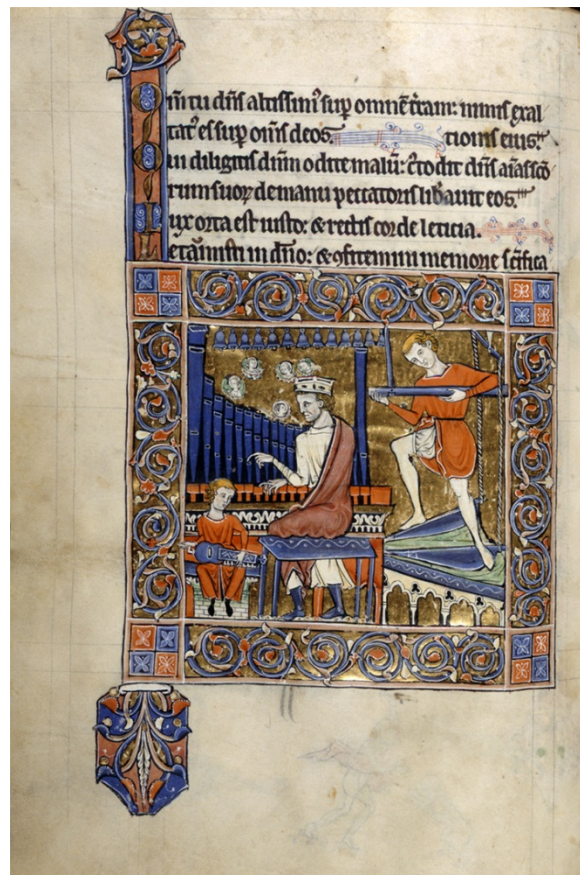 Qm̄ tu dn̄s altissim᷒ sup omnē tr̄am: nimis exal
tat᷒ es sup om̄s deos. tionis eius.
Qui diligitis dn̄m odite malū: c᷒todit dn̄s aīas scō
rum suoꝝ de manu peccatoris lib̄avit eos.
Lux orta est iusto: & rectis corde leticia.
Letam̄i iusti in dn̄o: & ꝯfitemini memorie sc̄ifica